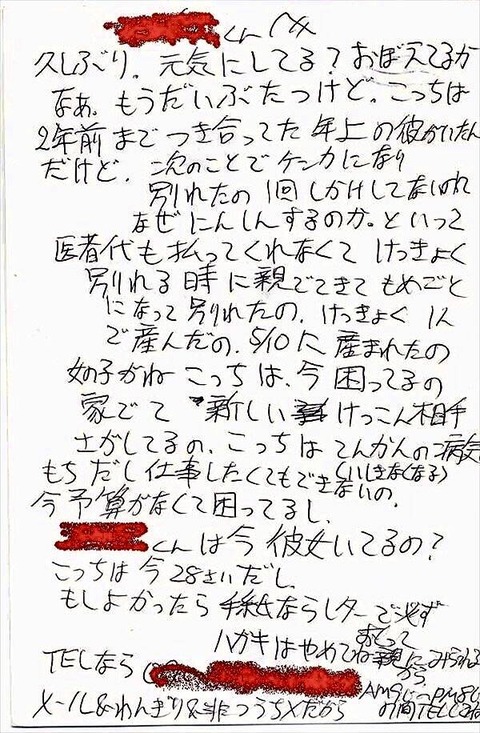 くんへ
久しぶり。元気にしてる?おぼえてるか
なあ。もうだいぶたつけど。こっちは
2年前までつき合ってた年上の彼がいたん
だけど。次のことでケンカになり
別れたの 1回しかけしてないのれ
なぜにんしんするのか。といって
医者代も払ってくれなくて けっきょく
別れる時に親でてきて もめごと
になって別れたの。けっきょく 1人
で産んだの。5/10に産まれたの
女の子がね こっちは、今困ってるの
家でて 新しい けっこん相手
さがしてるの。こっちはてんかんの病気
もちだし仕事したくてもできないの。
(いしきなくなる)
今予算がなくて困ってるし、
くんは今彼女いてるの?
こっちは今28さいだし
もしよかったら手紙ならレターで必ず
ハガキはやめてね親にみられる
から
TELなら(
AM9じ〜PM8じ
メール&わんぎり&非つうちXだから
の間TELしてね